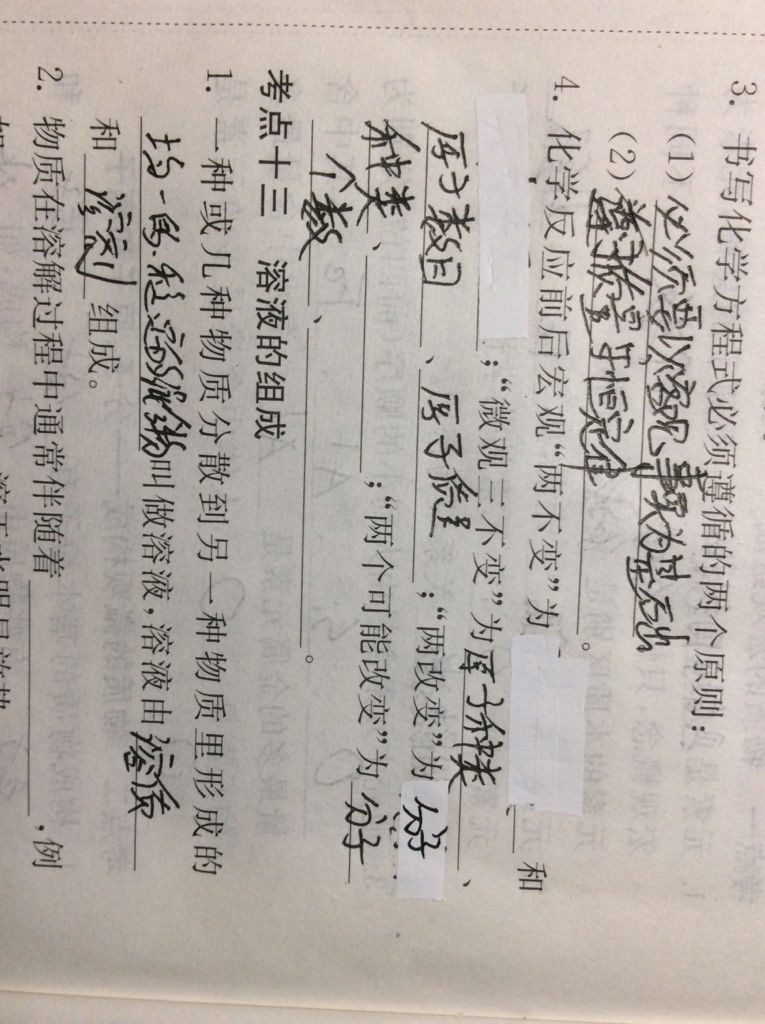 3. 书写化学方程式必须遵循的两个原则：
（1）必须要以客观事实为基础
（2）遵守质量守恒定律。
4. 化学反应前后宏观“两不变”为、和
；“微观三不变”为原子种类、
原子数目、原子质量；“两改变”为分子
种类、；“两个可能改变”为分子
个数、。
考点十三 溶液的组成
1. 一种或几种物质分散到另一种物质里形成的
均一的、稳定的混合物叫做溶液，溶液由溶质
和溶剂组成。
2. 物质在溶解过程中通常伴随着，例